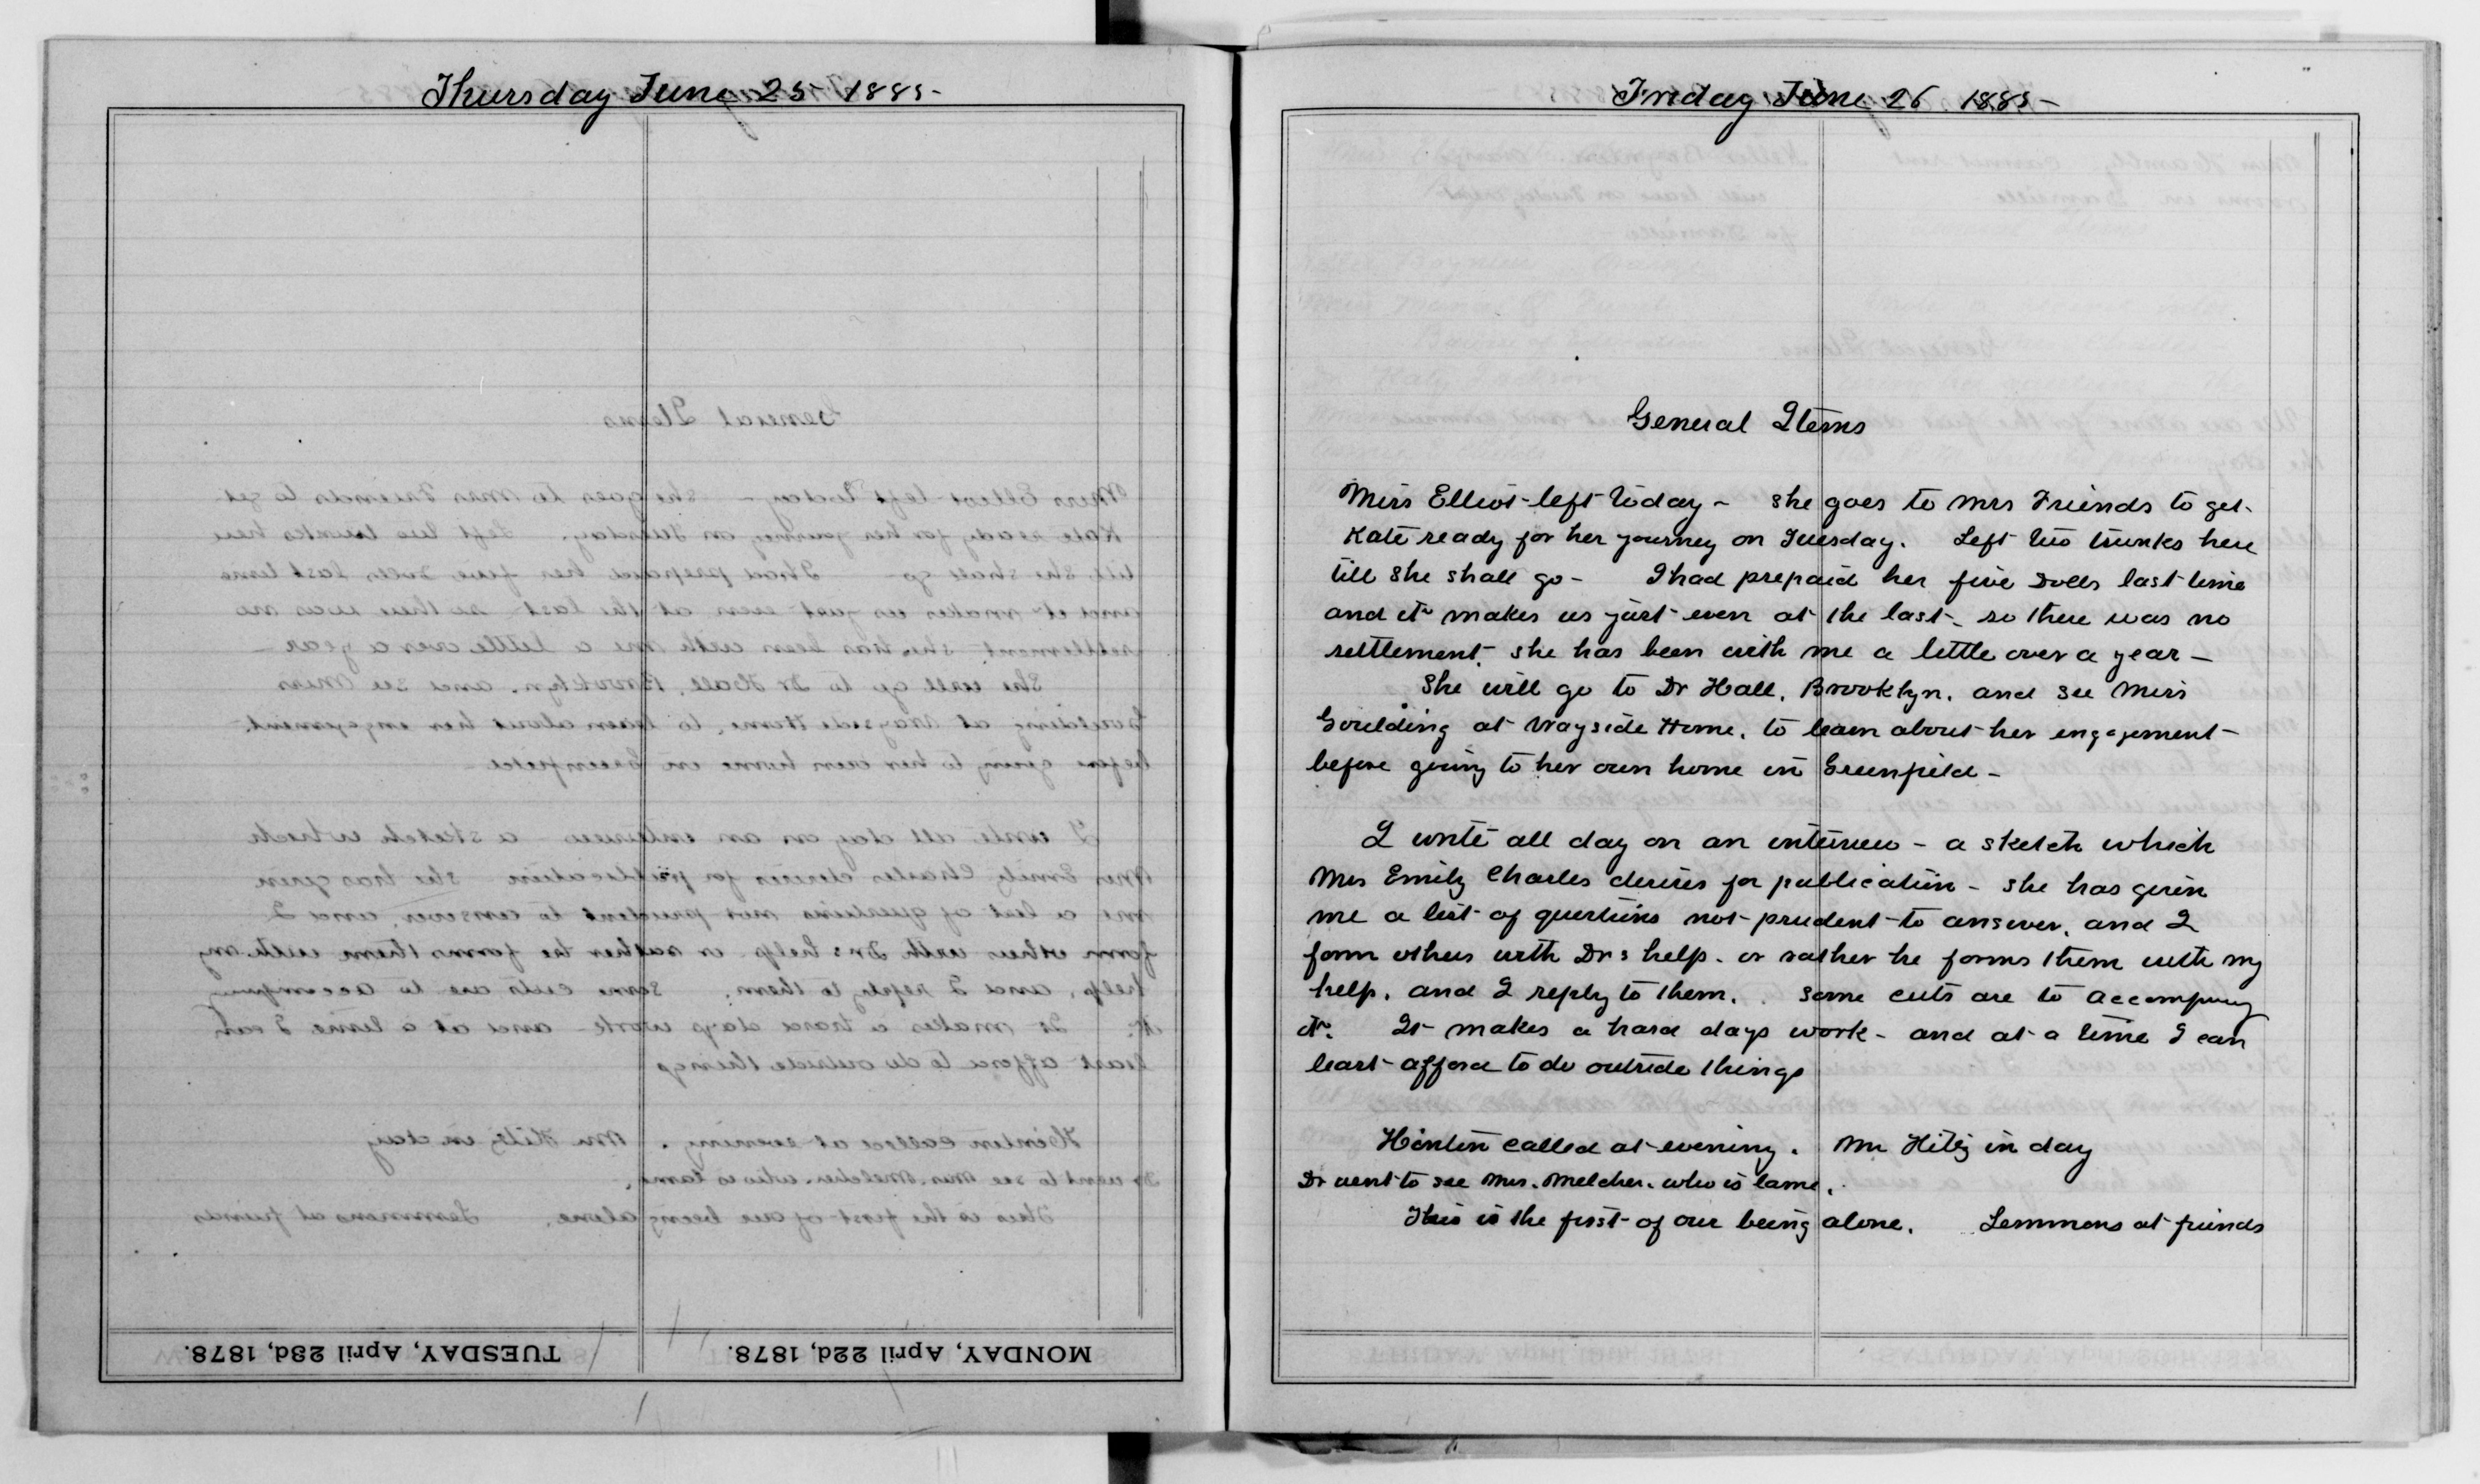 Thursday June 25 1885-
TUESDAY, April 23d, 1878.
MONDAY, April 22d, 1878.
Friday June 26 1885-
General Items
Miss Elliot left today - She goes to Mrs Friends to get
Kate ready for her journey on Tuesday. Left two trunks here
till she shall go - I had prepaid her five Dolls last time
and it makes us just even at the last, so there was no
settlement. She has been with me a little over a year -
She will go to Dr Hall, Brooklyn, and see Miss
Goulding at Wayside Home, to learn about her engagement -
before going to her own home in Greenfield -
I write all day on an interview - a sketch which
Mrs Emily Charles desires for publication - She has given
me a list of questions not prudent to answer, and I
form others with Drs help - or rather he forms them with my
help, and I reply to them. Some cuts are to accompany
it. It makes a hard days work - and at a time I can
least afford to do outside things
Hinton called at evening. Mr Hitz in day
Dr went to see Mrs. Melcher. who is lame.
This is the first of our being alone. Lemmons at friends